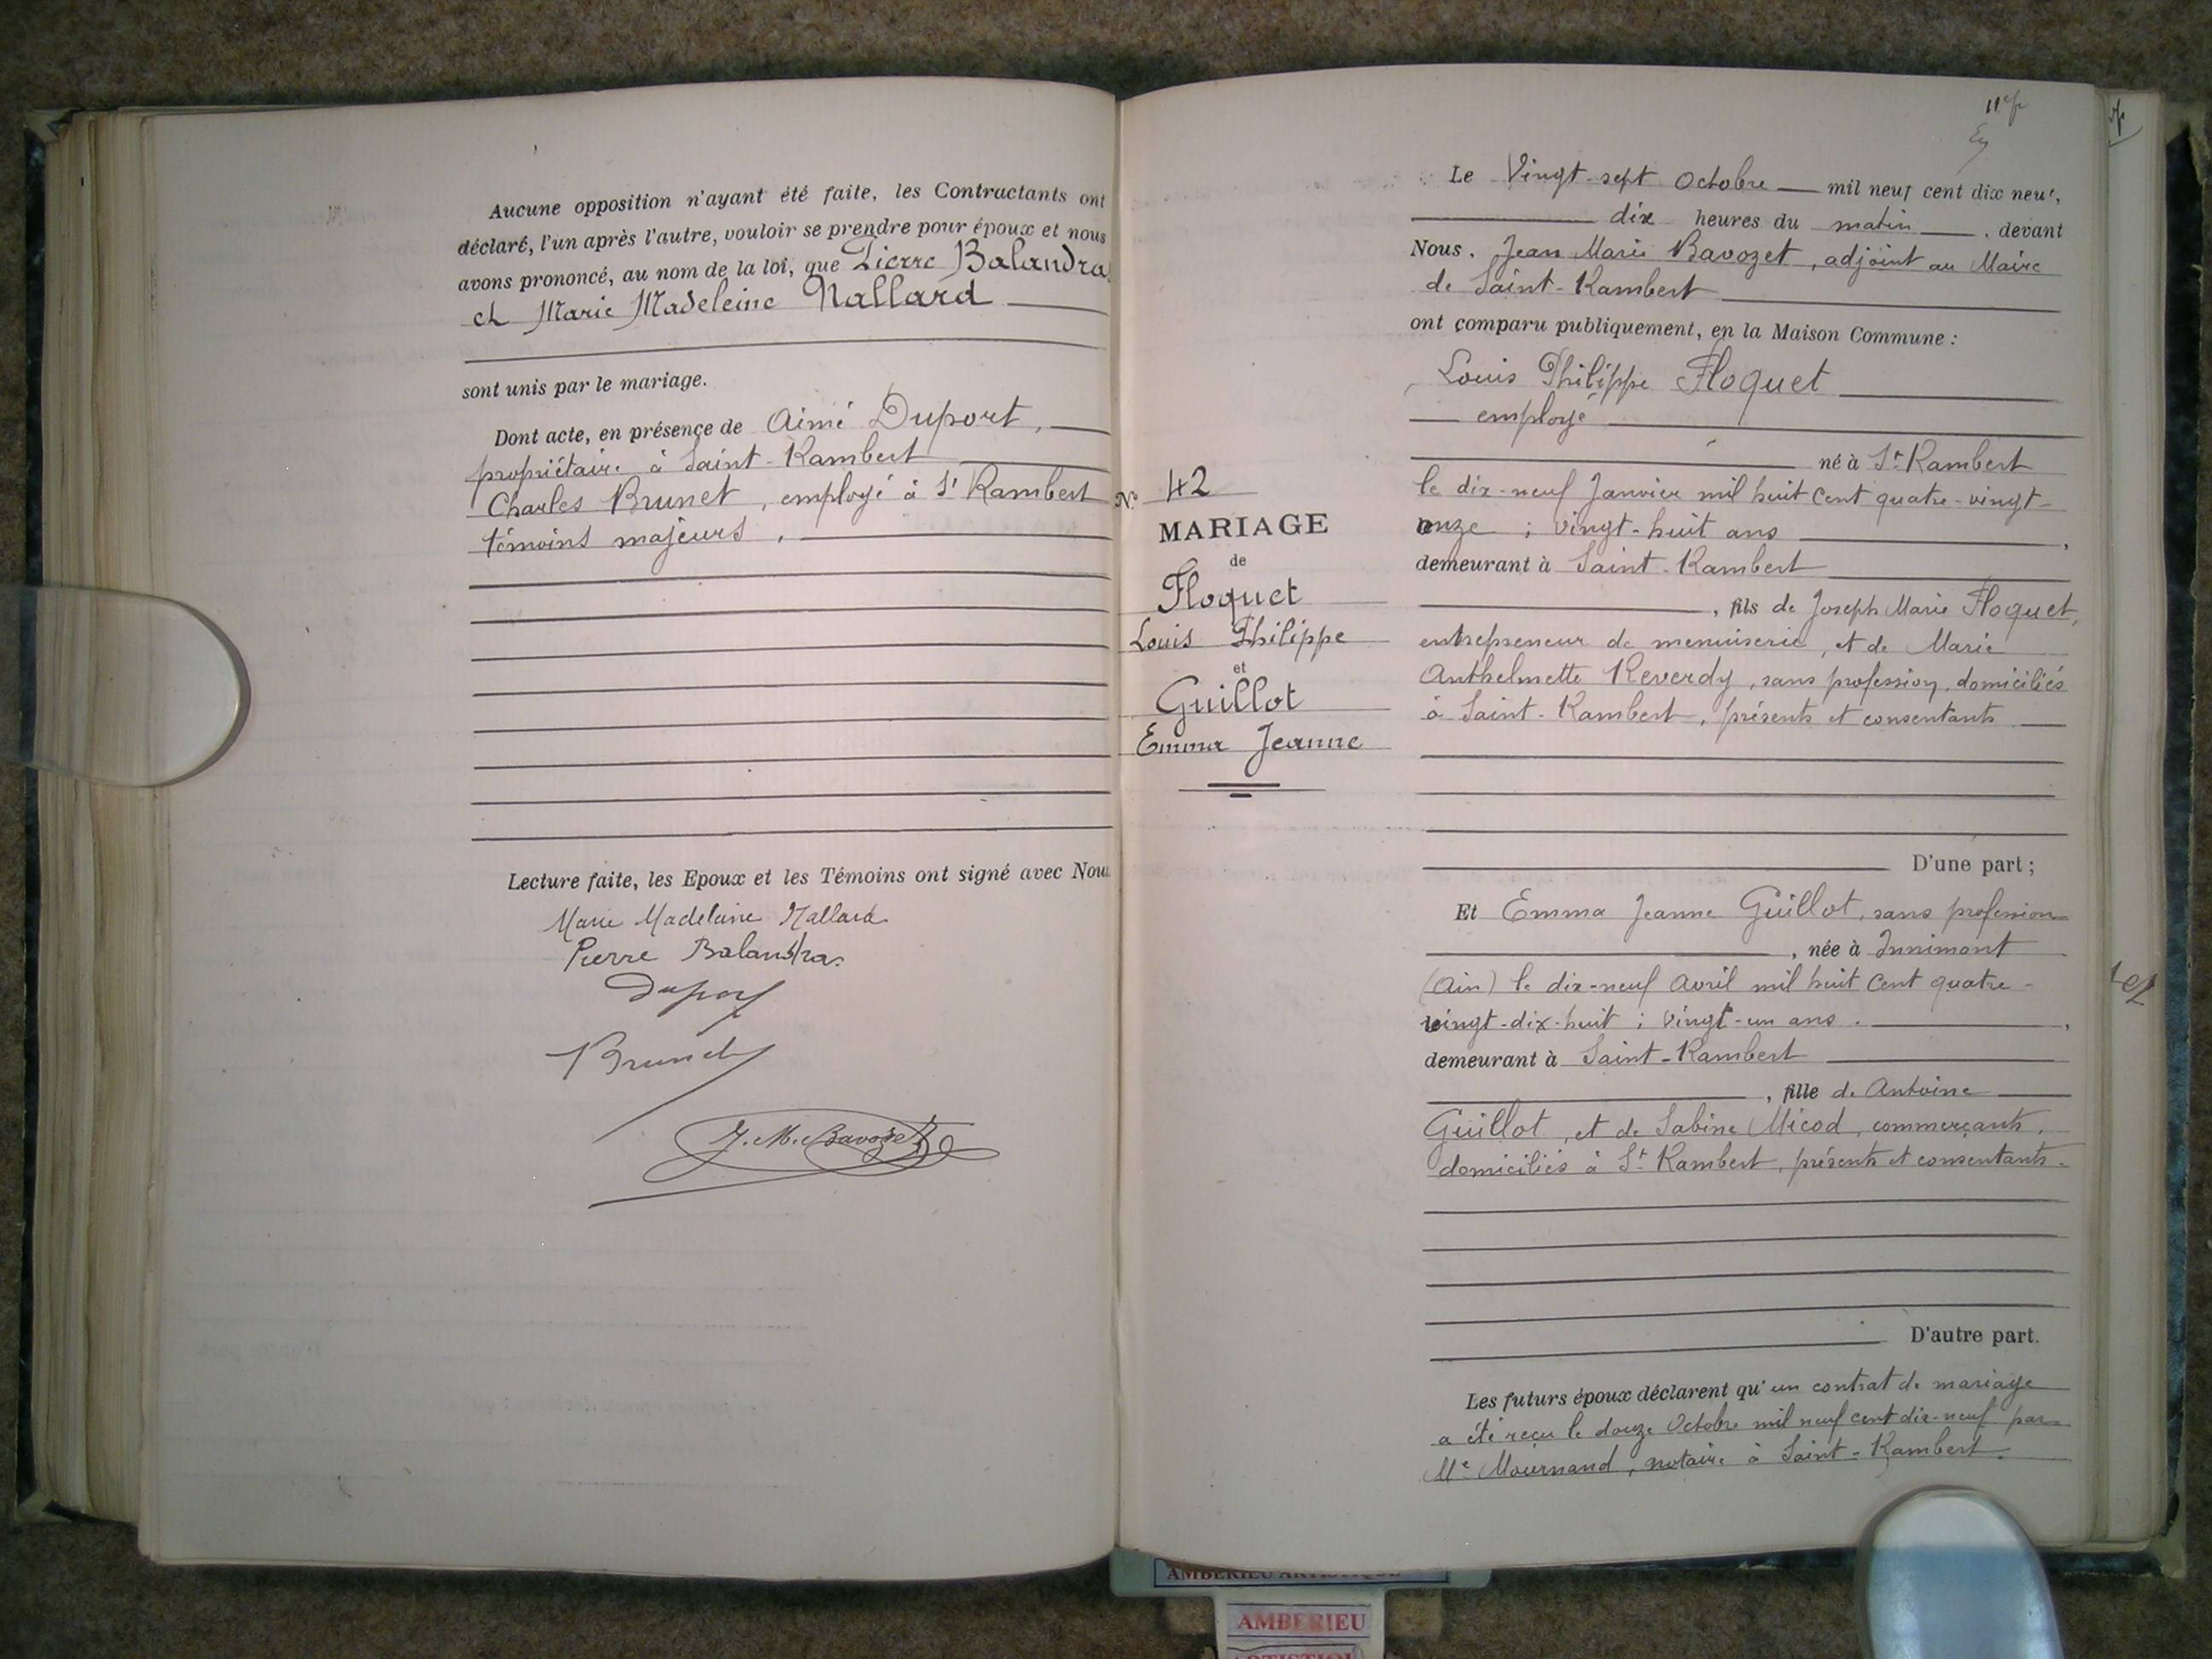 Aucune opposition n'ayant été faite, les Contractants ont
déclaré, l'un après l'autre, vouloir se prendre pour époux et nous
avons prononcé, au nom de la loi, que Pierre Balandra
et Marie Madeleine Nallard
sont unis par le mariage.
Dont acte, en présence de Aimé Duport,
propriétaire à Saint-Rambert
Charles Brunet, employé à St Rambert
témoins majeurs,
Lecture faite, les Epoux et les Témoins ont signé avec Nou
Marie Madeleine Nallard
Pierre Balandras
Duport
Brunet
J. M. Bavozet
N° 42
MARIAGE
de
Floquet
Louis Philippe
et
Guillot
Emma Jeanne
Le Vingt-sept Octobre mil neuf cent dix neuf,
dix heures du matin, devant
Nous, Jean Marie Bavozet, adjoint au Maire
de Saint-Rambert
ont comparu publiquement, en la Maison Commune :
Louis Philippe Floquet
employé
né à St Rambert
le dix-neuf Janvier mil huit cent quatre-vingt-
onze ; vingt-huit ans,
demeurant à Saint-Rambert
, fils de Joseph Marie Floquet,
entrepreneur de menuiserie, et de Marie
Anthelmette Reverdy, sans profession, domiciliés
à Saint-Rambert, présents et consentants
D'une part ;
Et Emma Jeanne Guillot, sans profession
, née à Innimont
(Ain) le dix-neuf Avril mil huit cent quatre-
vingt-dix-huit ; vingt-un ans.,
demeurant à Saint-Rambert
, fille de Antoine
Guillot, et de Sabine Micod, commerçants,
domiciliés à St Rambert, présents et consentants.
D'autre part.
Les futurs époux déclarent qu'un contrat de mariage
a été reçu le douze Octobre mil neuf cent dix-neuf par
Me Mournand, notaire à Saint-Rambert.
AMBERIEU ARTISTIQUE
AMBERIEU